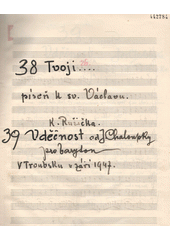 38 Tvoji....
píseň k sv. Václavu.
K. Růžička.
39 Vděčnost od J. Chaloupky
pro baryton
V Troubsku v září 1947.